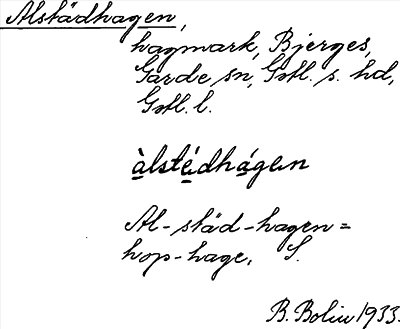 Alstädhagen,
hagmark, Bjerges,
Garde sn, Gotl. s. hd,
Gotl. l.
àlstédhágen
Al-städ-hagen =
hop-hage. S.
B. Bolin 1933.